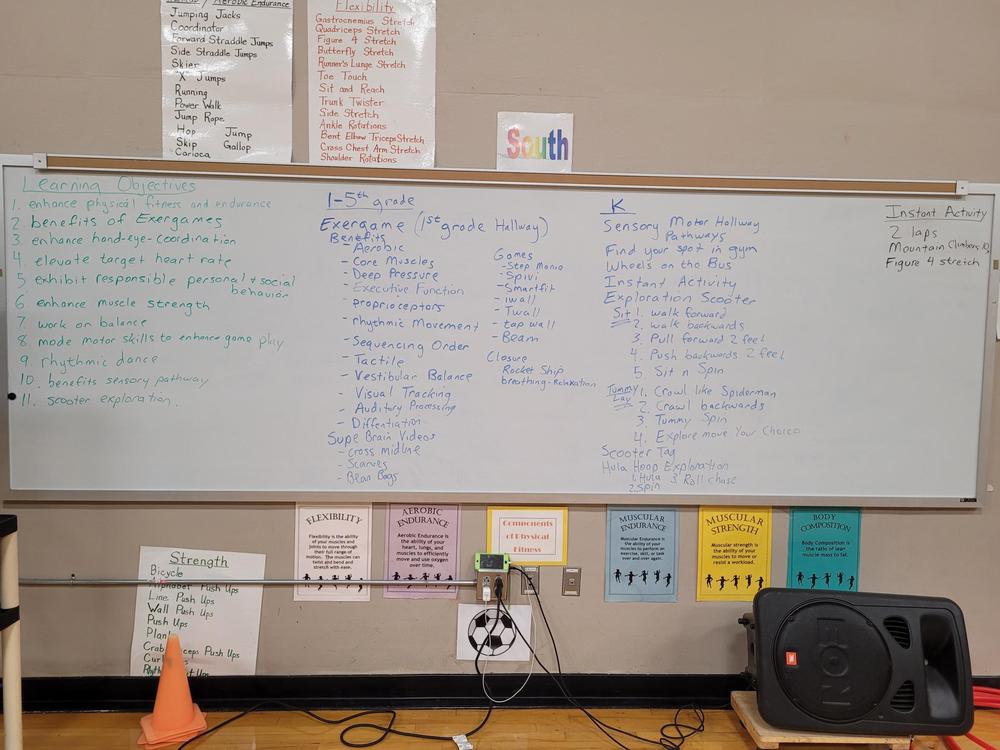 Aerobic Endurance
Jumping Jacks
Coordinator
Forward Straddle Jumps
Side Straddle Jumps
Skier
"X" Jumps
Running
Power Walk
Jump Rope
Hop Jump
Skip Gallop
Carioca
Flexibility
Gastrocnemius Stretch
Quadriceps Stretch
Figure 4 Stretch
Butterfly Stretch
Runner's Lunge Stretch
Toe Touch
Sit and Reach
Trunk Twister
Side Stretch
Ankle Rotations
Bent Elbow Triceps Stretch
Cross Chest Arm Stretch
Shoulder Rotations
South
Learning Objectives
1. enhance physical fitness and endurance
2. benefits of Exergames
3. enhance hand-eye-coordination
4. elevate target heart rate
5. exhibit responsible personal + social
behavior
6. enhance muscle strength
7. work on balance
8. mode motor skills to enhance game play
9. rhythmic dance
10. benefits sensory pathway
11. scooter exploration.
1-5th grade
Exergame (1st grade Hallway)
Benefits
- Aerobic
- Core Muscles
- Deep Pressure
- Executive Function
- proprioceptors
- rhythmic Movement
- Sequencing Order
- Tactile
- Vestibular Balance
- Visual Tracking
- Auditory Processing
- Diffentiation
Supe Brain Videos
- cross midline
- Scarves
- Bean Bags
Games
- Step Mania
- Spivi
- Smartfit
- iwall
- Twall
- tap wall
- Beam
Closure
Rocket Ship
breathing-Relaxation
K
Sensory Motor Hallway
Pathways
Find your spot in gym
Wheels on the Bus
Instant Activity
Exploration Scooter
Sit 1. walk forward
2. walk backwards
3. Pull forward 2 feet
4. Push backwards 2 feet
5. Sit n Spin
Tummy Lay 1. Crawl like Spiderman
2. Crawl backwards
3. Tummy Spin
4. Explore move Your Choice
Scooter Tag
Hula Hoop Exploration
1. Hula 3. Roll chase
2. Spin
Instant Activity
2 laps
Mountain Climbers
Figure 4 stretch
FLEXIBILITY
Flexibility is the ability
of your muscles and
joints to move through
their full range of
motion. The muscles can
twist and bend and
stretch with ease.
AEROBIC
ENDURANCE
Aerobic Endurance is the
ability of your
heart, lungs, and
muscles to efficiently
move and use oxygen
over time.
Components
of Physical
Fitness
MUSCULAR
ENDURANCE
Muscular Endurance is
the ability of your
muscles to perform an
exercise, skill, or task
over and over again.
MUSCULAR
STRENGTH
Muscular strength is
the ability of your
muscles to move or
resist a workload.
BODY
COMPOSITION
Body Composition is
the ratio of lean
muscle mass to fat.
Strength
Bicycle
Alphabet Push Ups
Line Push Ups
Wall Push Ups
Push Ups
Plank
Push Ups
JBL
EON